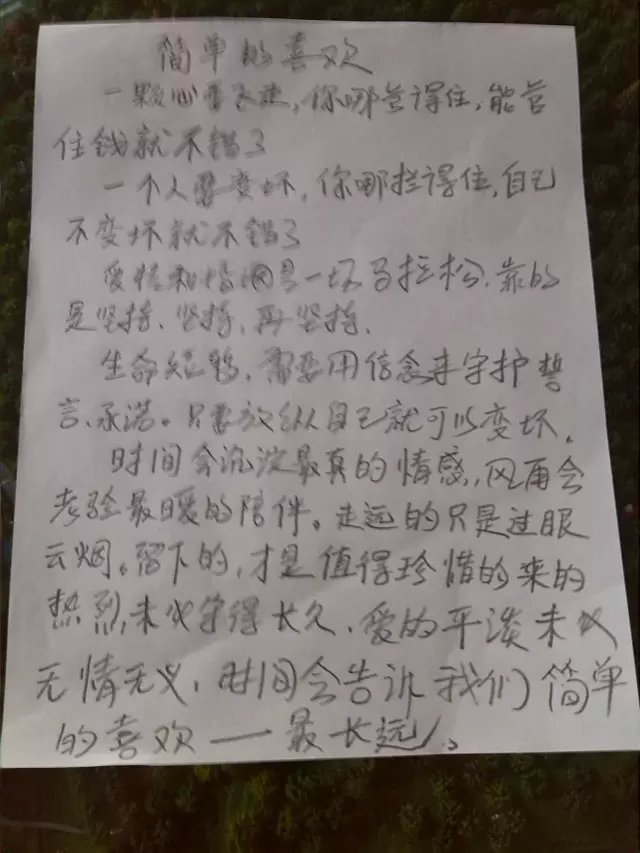 简单的喜欢
一颗心要不走,你哪管得住,能管
住钱就不错了
一个人要变坏,你哪拦得住,自己
不变坏就不错了
爱情和婚姻是一场马拉松.靠的
是坚持、坚持、再坚持.
生命短暂.需要用信念来守护誓
言、承诺。只要放纵自己就可以变坏.
时间会沉淀最真的情感,风雨会
考验最暖的陪伴。走远的只是过眼
云烟。留下的,才是值得珍惜的来的
热烈,未必守得长久.爱的平淡未必
无情无义,时间会告诉我们简单
的喜欢——最长远。